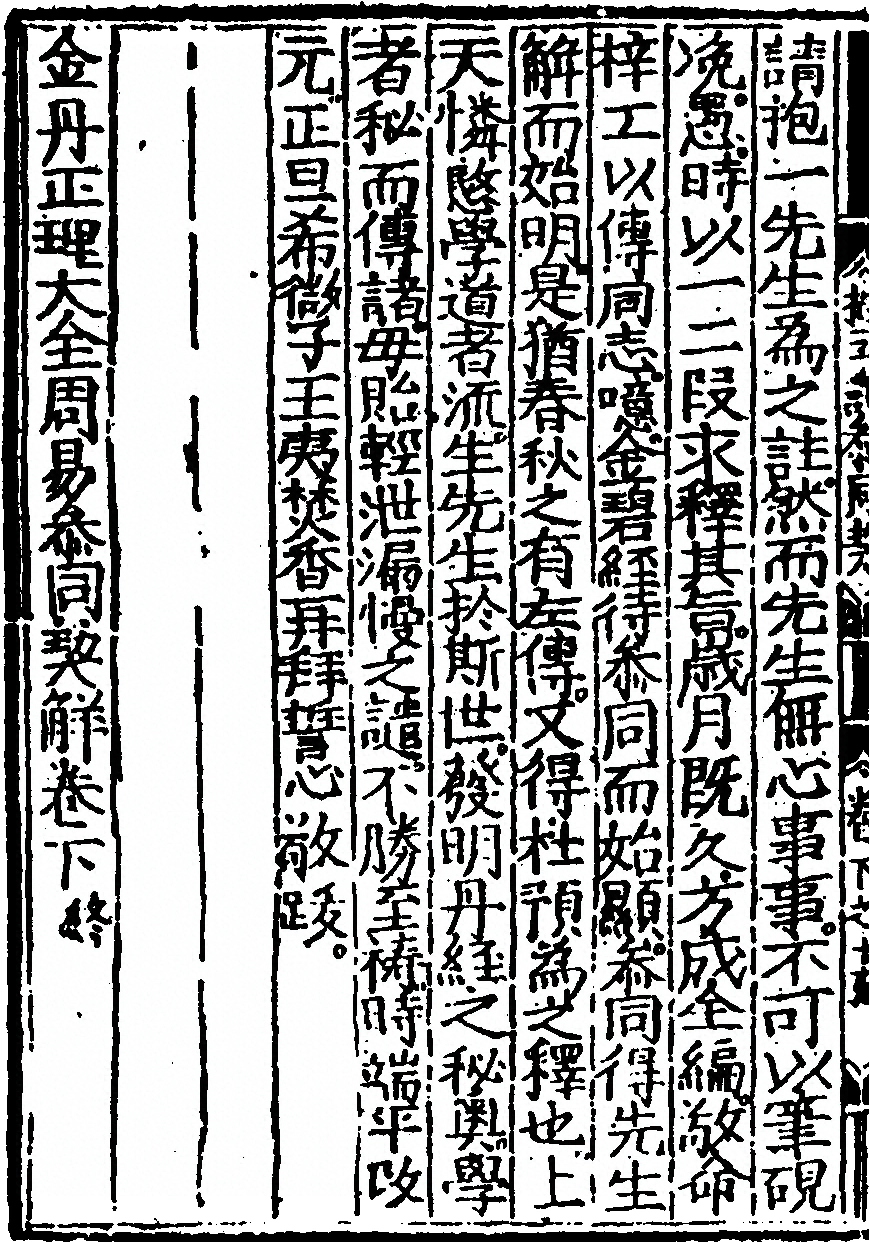 請抱一先生為之註然而先生無心事事不可以筆硯
凂愚時以一二段求釋其旨歲月既久方成全編敬命
梓工以傳同志噫金碧經待叅同而始顯叅同得先生
解而始明是猶春秋之有左傳又得杜預為之釋也上
天憐愍學道者流生先生於斯世發明丹經之秘奧學
者秘而傳諸毋貽輕泄漏慢之譴不勝至禱時端平改
元正旦希微子王夷焚香再拜誓心敬跋
金丹正理大全周易叅同契解卷下 終